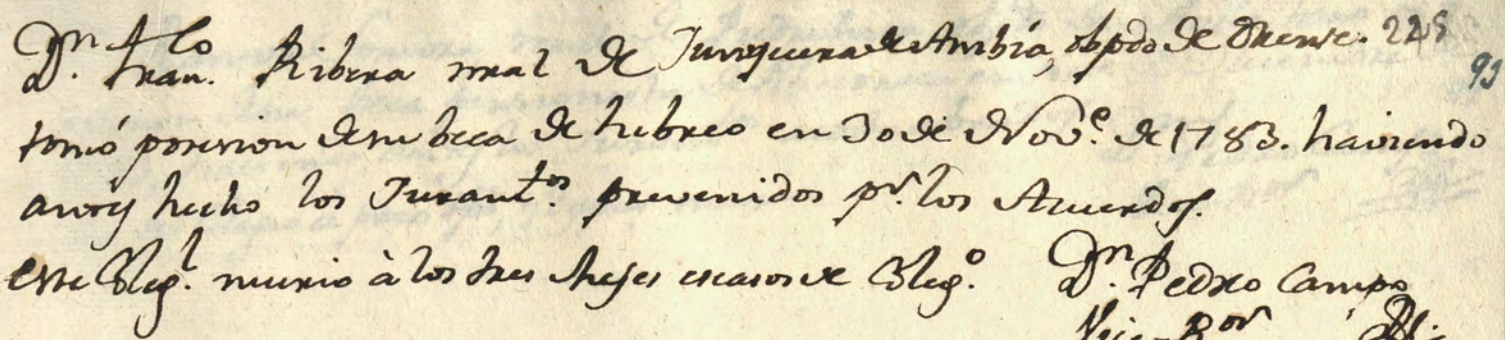 Dn. Fran.co Ribera nral de Junquera de Ambía, obpdo de Orense. 225
93
tomó posesion de su beca de hebreo en 30 de Nove. de 1783. haviendo
antes hecho los Juramtos. prevenidos pr. los Acuerdos.
este Colegl. murio à los tres Meses escasos de Colego. Dn. Pedro Campo
Vice-Ror